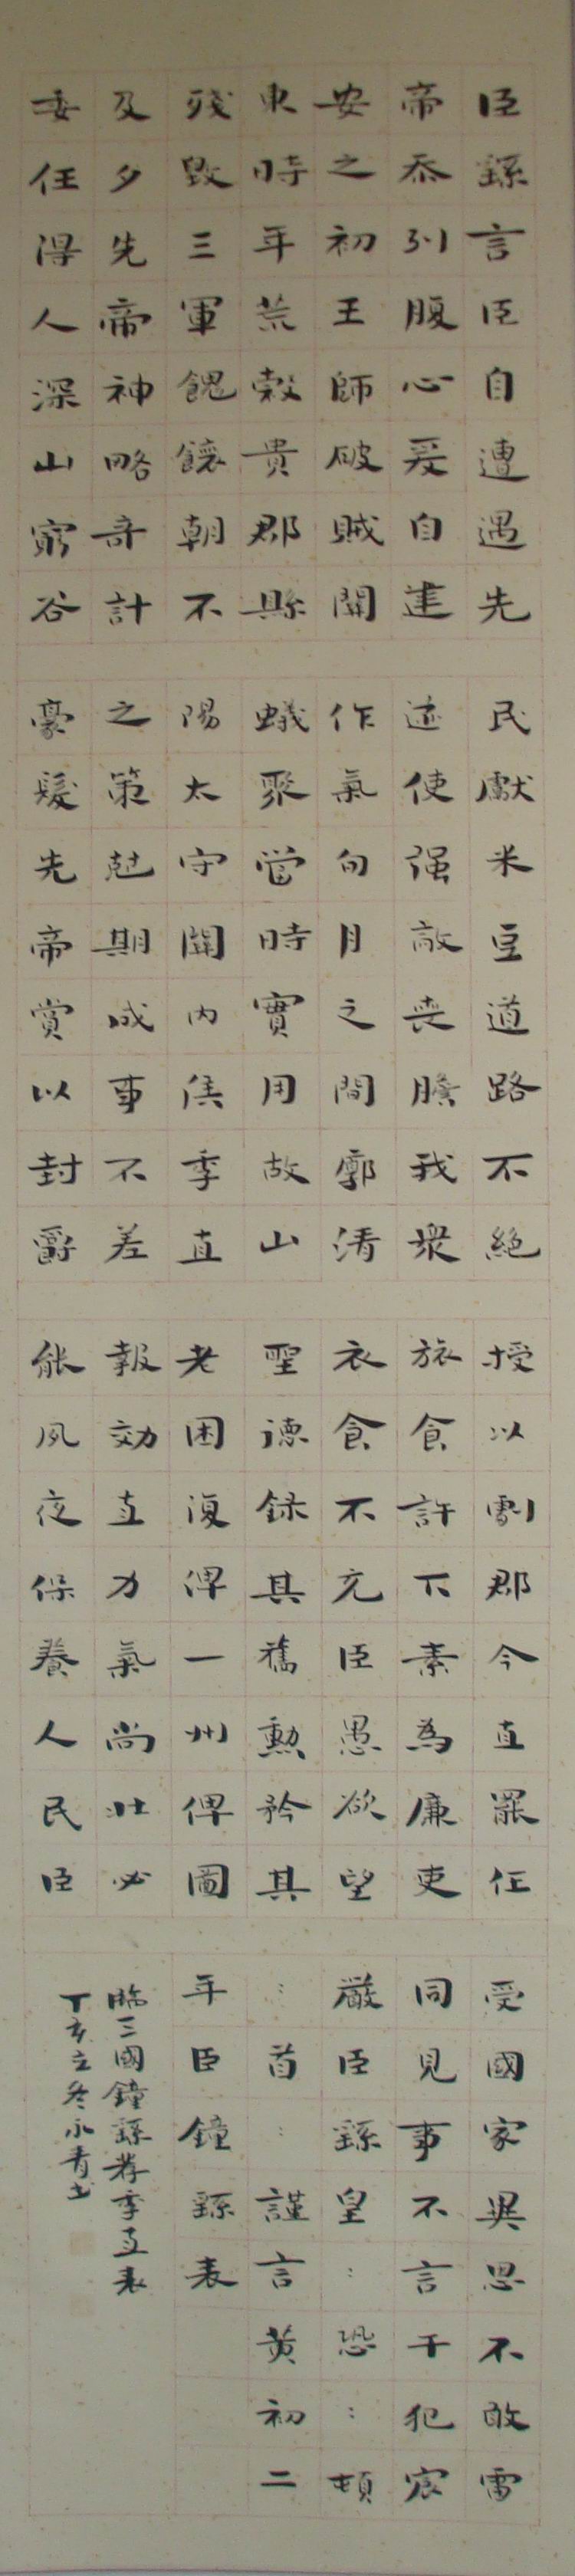 臣繇言臣自遭遇先
帝忝列腹心爰自建
安之初王師破賊關
東時年荒穀貴郡縣
殘毀三軍餽饟朝不
及夕先帝神略奇計
委任得人深山窮谷
民獻米豆道路不絕
遂使强敵喪膽我衆
作氣旬月之間廓清
蟻聚當時實用故山
陽太守關內侯季直
之策剋期成事不差
豪髮先帝賞以封爵
授以劇郡今直罷任
旅食許下素為廉吏
衣食不充臣愚欲望
聖德錄其舊勳矜其
老困復俾一州俾圖
報効直力氣尚壯必
能夙夜保養人民臣
受國家異恩不敢雷
同見事不言干犯宸
嚴臣繇皇:恐:頓
:首:謹言黃初二
年臣鐘繇表
臨三國鐘繇荐季直表
丁亥立冬永青书